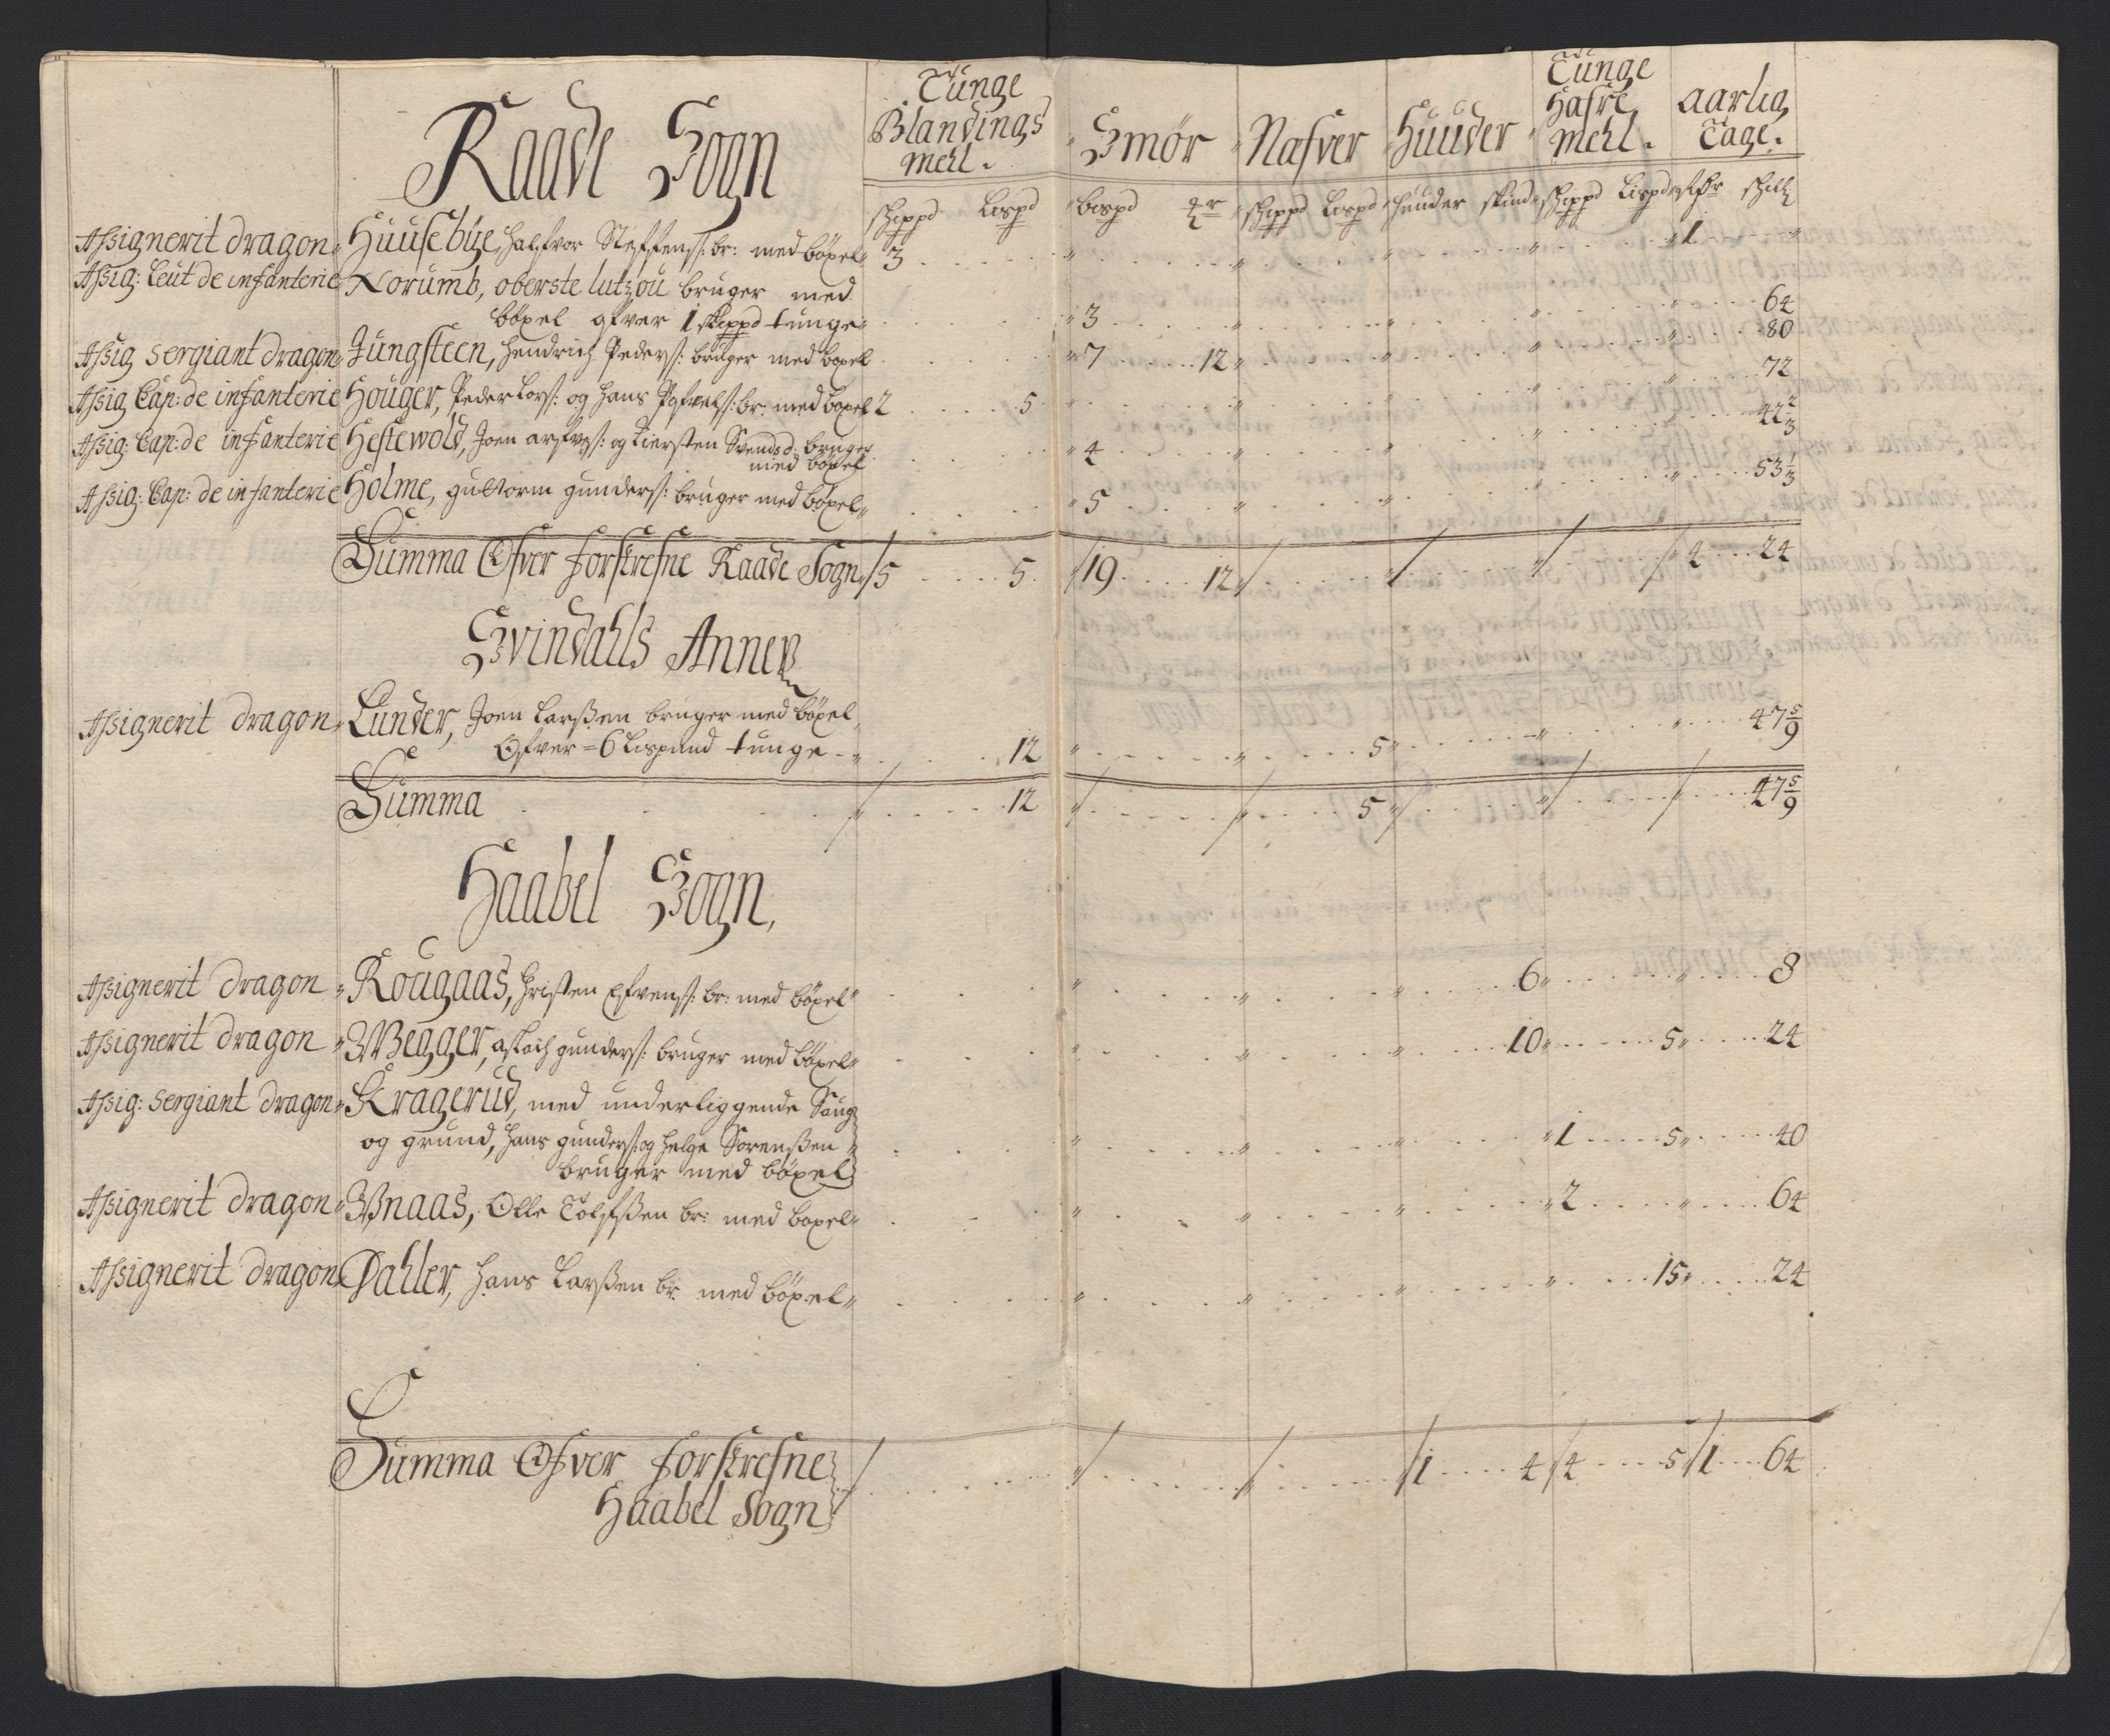 Raade Sogn
Tünge Blandings Mehl.
Smør
Nafver
Huuder
Tünge Hafre Mehl.
Aarlig Tage.
schippd Lispd bispd schippd Lispd huuder skind schippd Lispd schill
Assignerit dragon Huusebÿe, Halfvor Steffens: br: med böxel 3 1
Assig: Leut de infanterie Norumb, oberste Lutzou bruger med
böxel ofver 1 skippd tunge 3 64
Assig Sergiant dragon Jüngsteen, Hendrich Peders: bruger med böxel 7 12 80
Assig Cap: de infanterie Houger, Peder Lars: og Hans br: med böxel 2 5 72
Assig: Cap: de infanterie Hestewold, Joen og Tiersten Svends: bruger
med böxel 4 42 2/3
Assig: Cap: de infanterie Holme, Guttorm Gunders: bruger med böxel 5 53 1/3
Summa Ofver forskrefne Raade Sogn 5 5 19 12 4 24
Svindahls Annex
Assignerit dragon Lunder, Joen Larssen bruger med böxel
Ofver 6 Lispund tunge 12 5 47 5/9
Summa 12 5 47 5/9
Haabel Sogn,
Assignerit dragon Rougaas, Christen Efvens: br: med böxel 6 8
Assignerit dragon Wegger, Aslach Gunders: bruger med böxel 10 5 24
Assig: Sergiant dragon Kragerud, med underliggende Saug
og grund, Hans Gunders: og Helge Sorenssen 1 5 40
bruger med böxel
Assignerit dragon Wnaas, Olle Tolfssen br: med boxel 2 64
Assignerit dragon Dahler, Hans Larssen br: med böxel 15 24
Summa Ofver forskrefne
Haabel Sogn 1 4 4 5 1 64